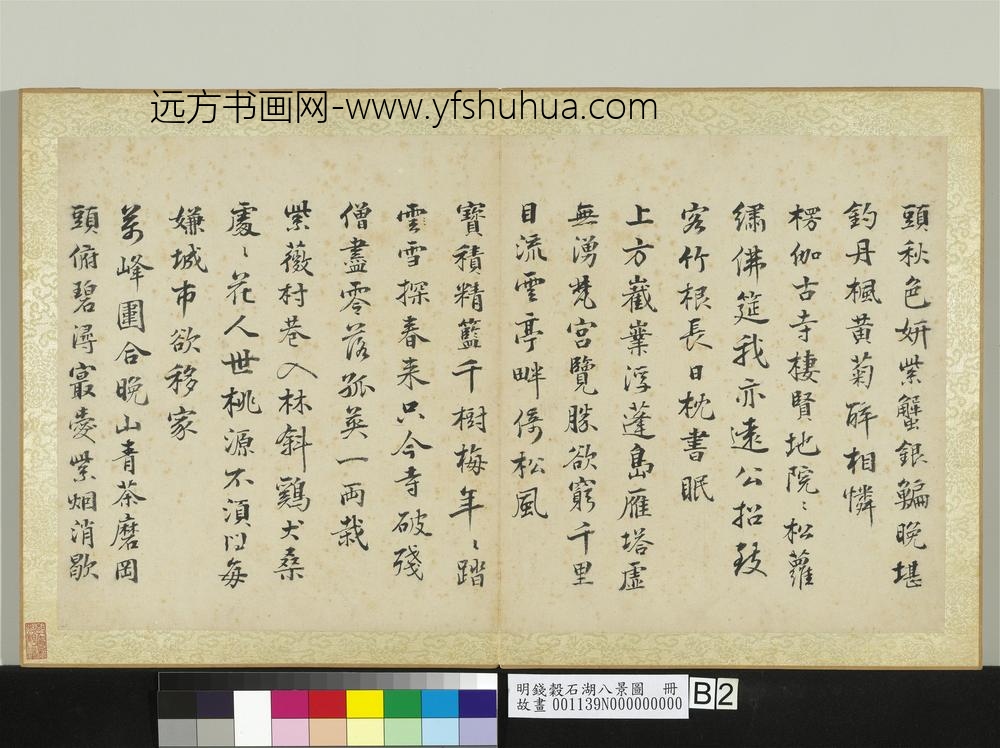 远方书画网-www.yfshuhua.com
頭秋色妍紫蟹銀鯿晚堪
釣丹楓黃菊醉相憐
楞伽古寺棲賢地院〻松蘿
繡佛筵我亦遠公招致
客竹根長日枕書眠
上方嶻嶪浮蓬島雁塔虛
無湧梵宮覽勝欲窮千里
目流雲亭畔倚松風
寶積精籃千樹梅年〻踏
雲雪探春来只今寺破殘
僧盡零落孤英一兩栽
紫薇村巷入林斜鷄犬桑
處〻花人世桃源不須问每
嫌城市欲移家
萬峰圍合晚山青茶磨岡
頭俯碧潯最愛紫烟消歇
明錢穀石湖八景圖 冊
故畫 001139N000000000
B2